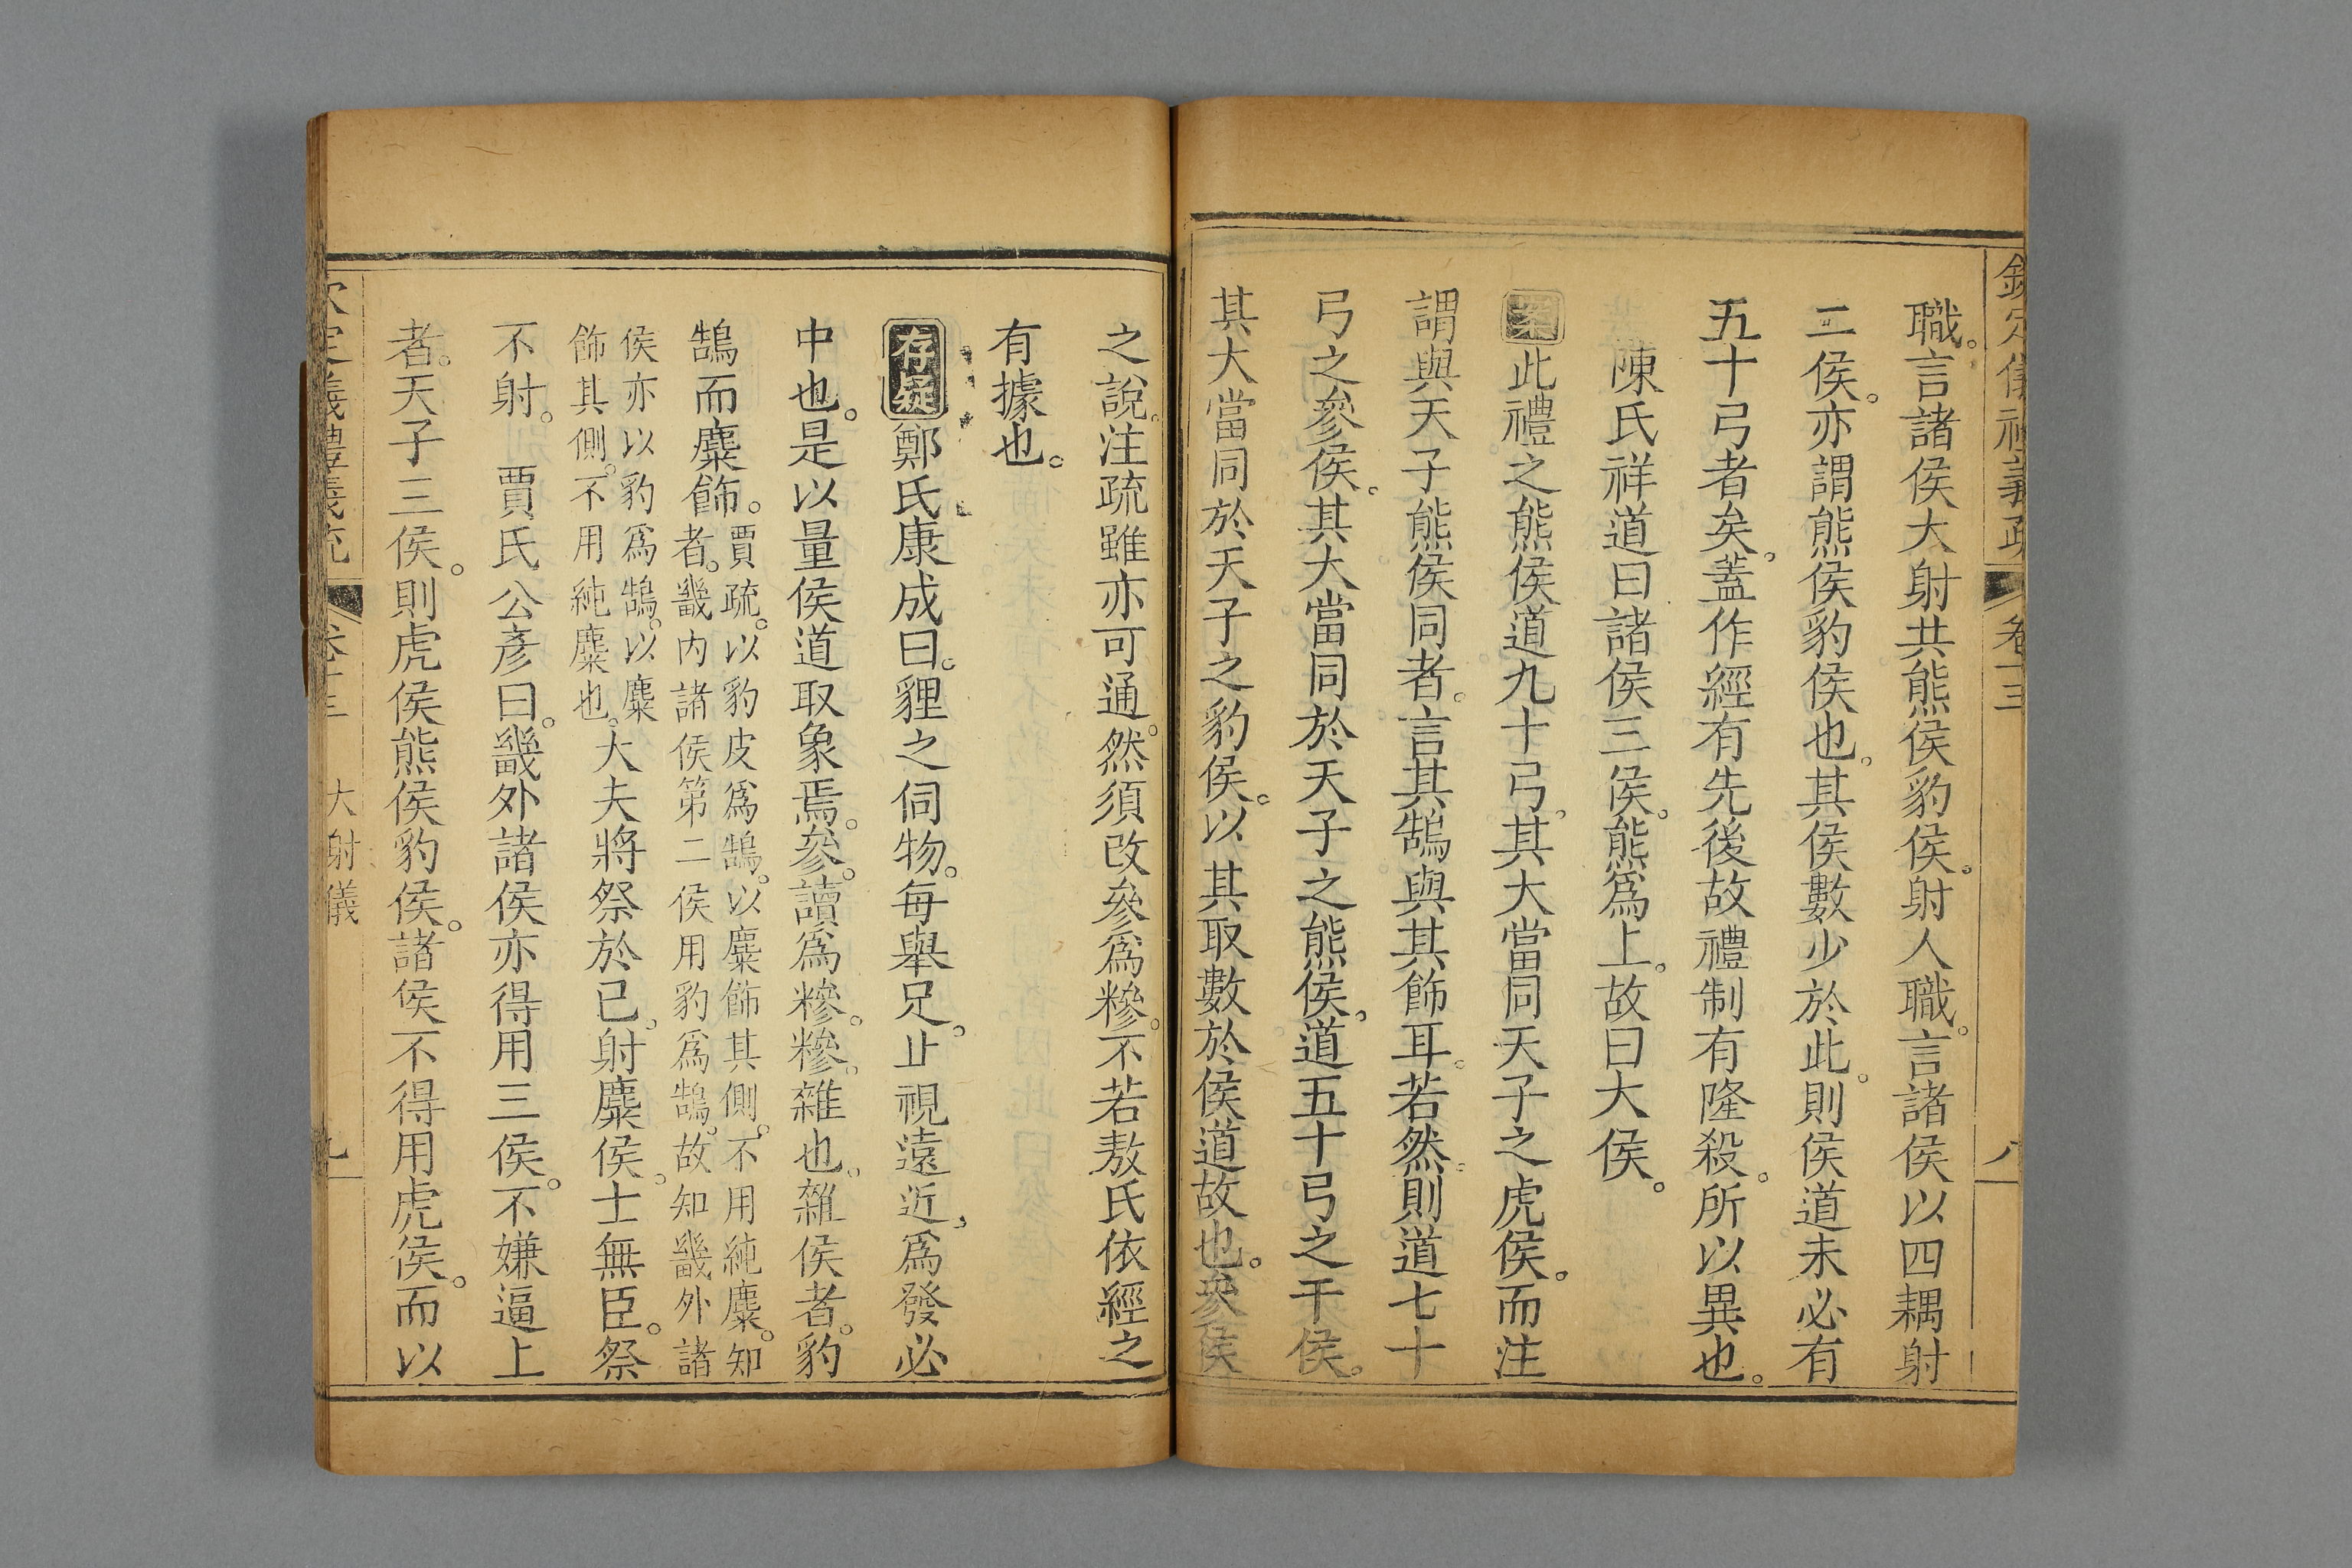 欽定儀禮義疏 卷十三 八
職。言諸侯大射共熊侯豹侯。射人職。言諸侯以四耦射
二侯。亦謂熊侯豹侯也。其侯數少於此。則侯道未必有
五十弓者矣。蓋作經有先後故禮制有隆殺。所以異也。
陳氏祥道曰諸侯三侯。熊爲上。故曰大侯。
案此禮之熊侯道九十弓。其大當同天子之虎侯。而注
謂與天子熊侯同者。言其鵠與其飾耳。若然。則道七十
弓之參侯。其大當同於天子之熊侯。道五十弓之干侯。
其大當同於天子之豹侯。以其取數於侯道故也。參侯
之說。注疏雖亦可通。然須改參爲糝。不若敖氏依經之
有據也。
存疑鄭氏康成曰。貍之伺物。每舉足。止視遠近。爲發必
中也。是以量侯道取象焉。參。讀爲糝。糝。雜也。雜侯者。豹
鵠而麋飾。賈疏。以豹皮爲鵠。以麋飾其側。不用純麋。知
者。畿内諸侯第二侯用豹爲鵠。故知畿外諸
侯亦以豹爲鵠。以麋
飾其側。不用純麋也。大夫將祭於已。射麋侯。士無臣。祭
不射。 賈氏公彥曰。畿外諸侯亦得用三侯。不嫌逼上
者。天子三侯。則虎侯熊侯豹侯。諸侯不得用虎侯。而以
欽定儀禮義疏 卷十三 大射儀 九